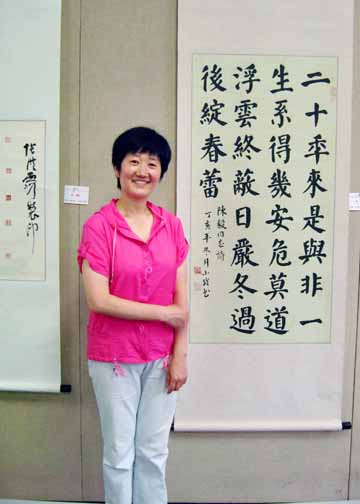 二十秊來是與非一
生系得幾安危莫道
浮雲終蔽日嚴冬過
後綻春蕾
陳毅同志詩
丁亥年冬月小書